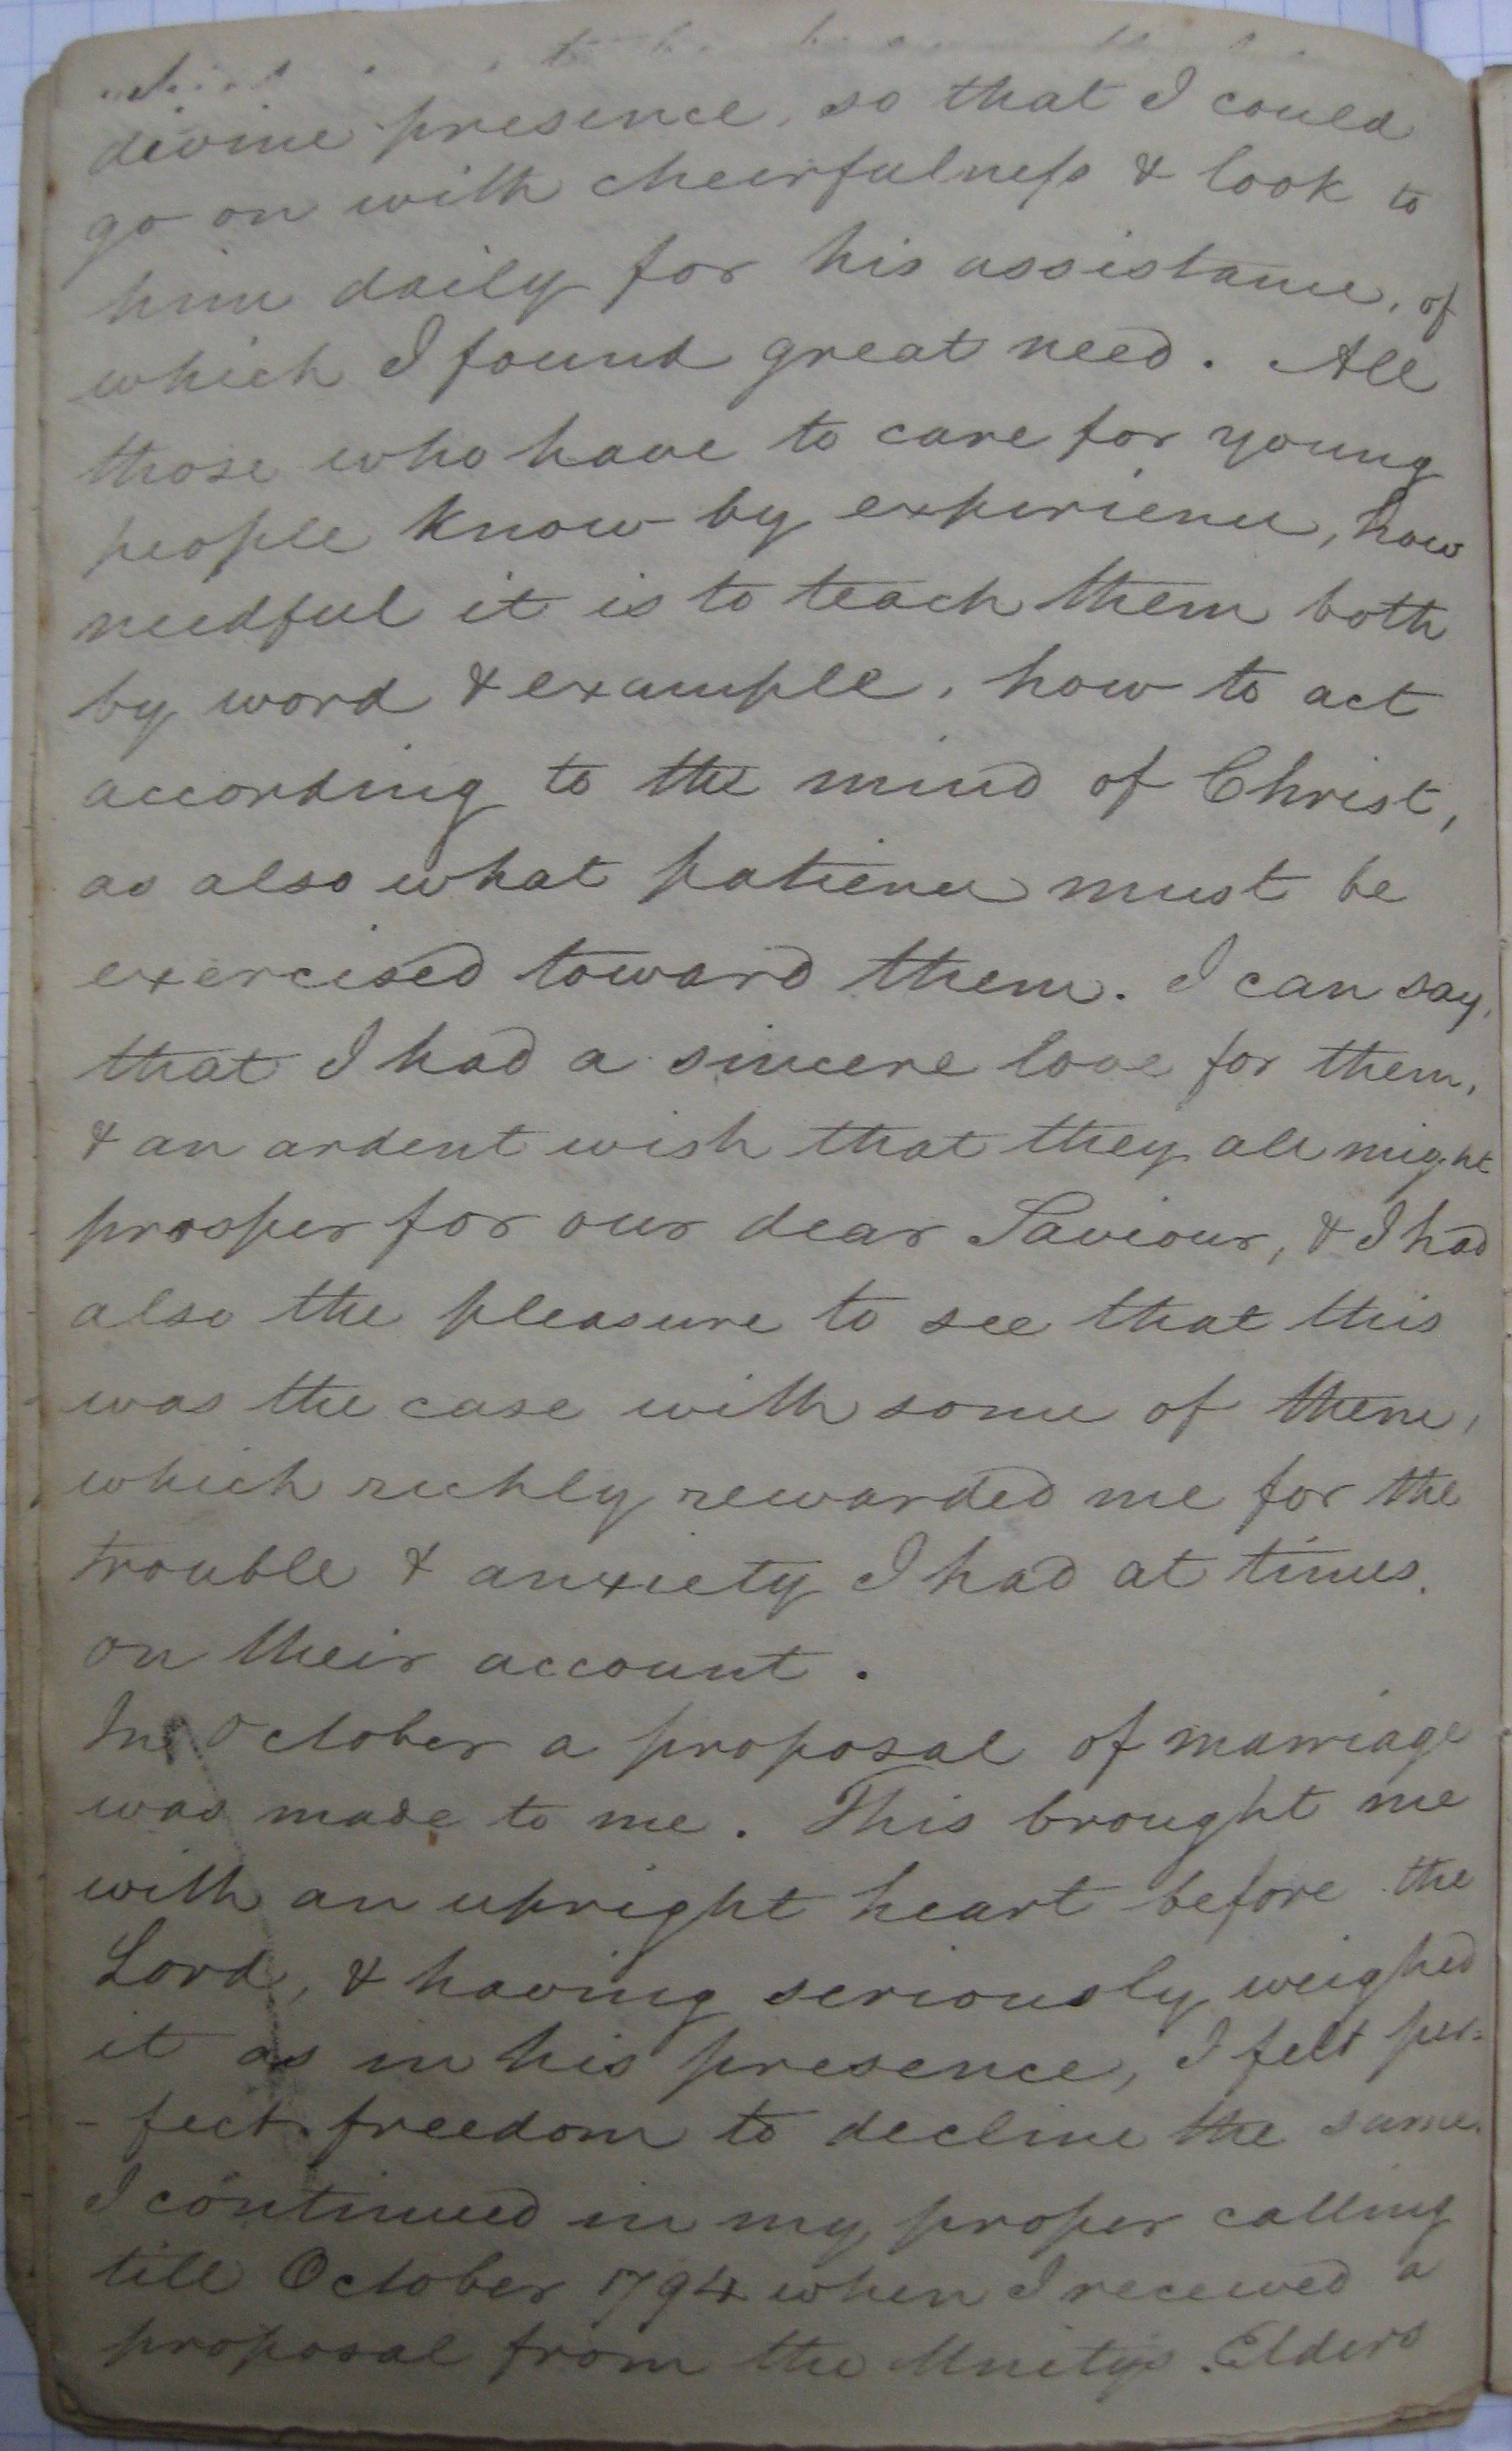 divine presence, so that I could
go on with cheirfulness & look to
him daily for his assistance, of
which I found great need. All
those who have to care for young
people know by experience, how
needful it is to teach them both
by word & example, how to act
according to the mind of Christ,
as also what patience must be
exercised toward them. I can say,
that I had a sincere love for them,
& an ardent wish that they all might
prosper for our dear Saviour, & I had
also the pleasure to see that this
was the case with some of them,
which richly rewarded me for the
trouble & anxiety I had at times.
on their account.
In October a proposal of marriage
was made to me. This brought me
with an upright heart before the
Lord, & having seriously weighed
it as in his presence, I felt per=
-fect freedom to decline the same.
I continued in my proper calling
till October 1794 when I received a
proposal from the Unitys Elders